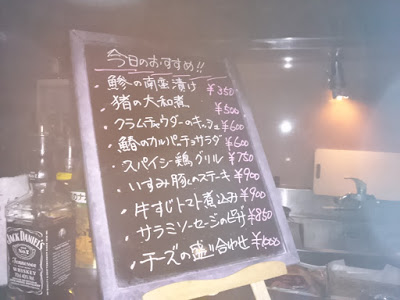 今日のおすすめ!!
・鯵の南蛮漬け ¥350
・猪の大和煮 ¥500
・クラムチャウダーのキッシュ ¥600
・鰆のカルパッチョサラダ ¥600
・スパイシー鶏グリル ¥750
・いずみ豚のステーキ ¥900
・牛すじトマト煮込み ¥900
・サラミソーセージのピザ ¥850
・チーズの盛り合わせ ¥1000
JACK DANIEL'S
WHISKEY